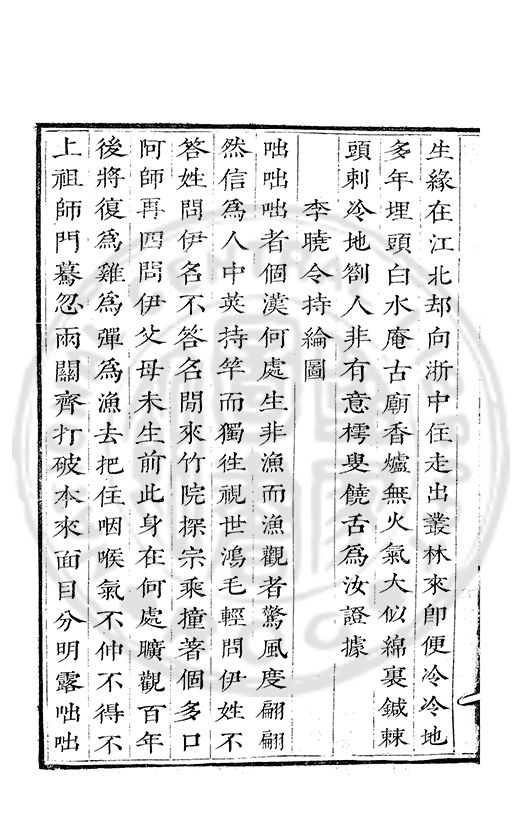 生緣在江北却向浙中住走出叢林來即便冷冷地
多年埋頭白水庵古廟香爐無火氣大似綿裏鍼棘
頭刺冷地劄人非有意樗叟饒舌為汝證據
李曉令持綸圖
咄咄咄者個漢何處生非漁而漁觀者驚風度翩翩
然信為人中英持竿而獨徃視世鴻毛輕問伊姓不
答姓問伊名不答名閒來竹院探宗乘撞著個多口
阿師再四問伊父母未生前此身在何處曠觀百年
後將復為雞為彈為漁去把住咽喉氣不伸不得不
上祖師門驀忽兩關齊打破本來面目分明露咄咄